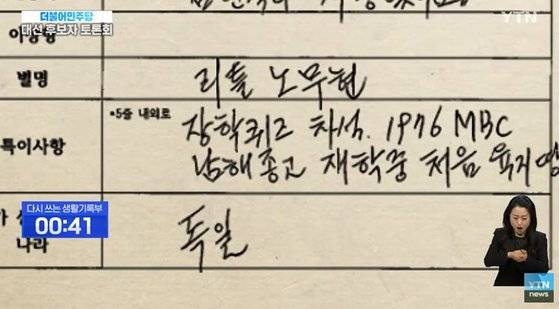 더불어민주당
대선 후보자 토론회
YTN
이상형
별명
리틀 노무현
특이사항
*5줄 내외로
장학퀴즈 차석. 1976 MBC
남해종고 재학중 처음 육지
다시 쓰는 생활기록부
00:41
나라
독일
YTN
news